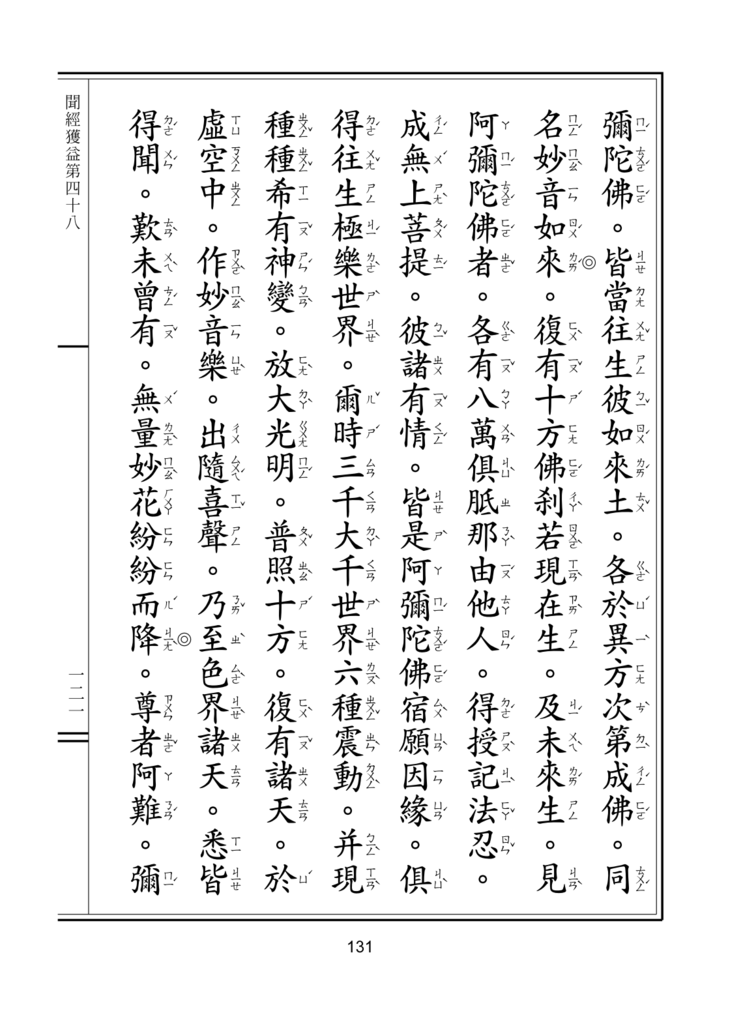 彌陀佛。皆當往生彼如來土。各於異方次第成佛。同
名妙音如來◎。復有十方佛剎若現在生。及未來生。見
阿彌陀佛者。各有八萬俱胝那由他人。得授記法忍。
成無上菩提。彼諸有情。皆是阿彌陀佛宿願因緣。俱
得往生極樂世界。爾時三千大千世界六種震動。并現
種種希有神變。放大光明。普照十方。復有諸天。於
虛空中。作妙音樂。出隨喜聲。乃至色界諸天。悉皆
得聞。歎未曾有。無量妙花紛紛而降◎。尊者阿難。彌
聞經獲益第四十八
一二一
131